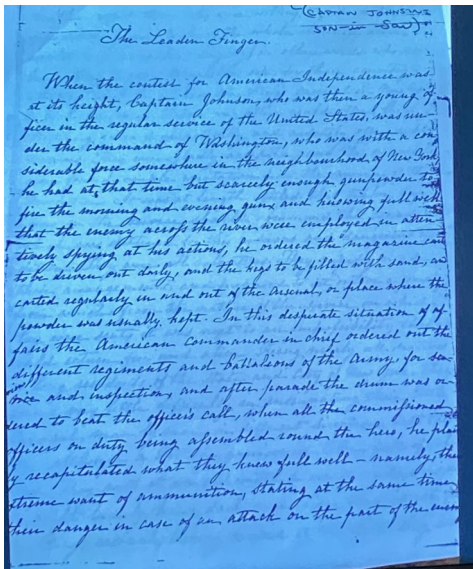 (CAPTAIN JOHNSON'S
SON-in-law)
The Leaden Finger.
When the contest for American Independence was
at its height, Captain Johnson, who was then a young of-
ficer in the regular service of the United States, was un-
der the command of Washington, who was with a con
siderable force somewhere in the neighbourhood of New York,
he had at that time but scarcely enough gunpowder to
fire the morning and evening guns and knowing full well
that the enemy across the river were employed in atten
tively spying at his actions, he ordered the magazine
to be driven out daily, and the kegs to be filled with sand, an
carted regularly in and out of the Arsenal, or place where the
powder was usually kept. In this desperate situation of af
fairs the American commander in chief ordered out the
different regiments and battalions of the Army, for
and inspection, and after parade the drum was or
dered to beat the officers call, when all the commissioned
officers on duty being assembled round the hero, he plain
y recapitulated what they knew full well — namely, the
xtreme want of ammunition, stating at the same time
their danger in case of an attack on the part of the enemy